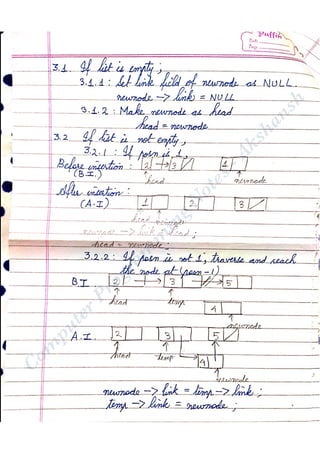 3.1. If list is empty;
3.1.1: Set link field of newnode as NULL.
newnode -> link = NULL
3.1.2: Make newnode as head
head = newnode
3.2 If list is not empty,
3.2.1: If posn is 1,
Before insertion: 2 3 1
(B.I.) head newnode
After insertion:
(A.I) 1 2 3
head newnode
newnode -> link = head;
head = newnode;
3.2.2: If posn is not 1, traverse and reach
the node at (posn-1)
B.I 2 3 5
head temp
4
newnode
A.I: 2 3 5
head temp
4
newnode
newnode -> link = temp -> link;
temp -> link = newnode;